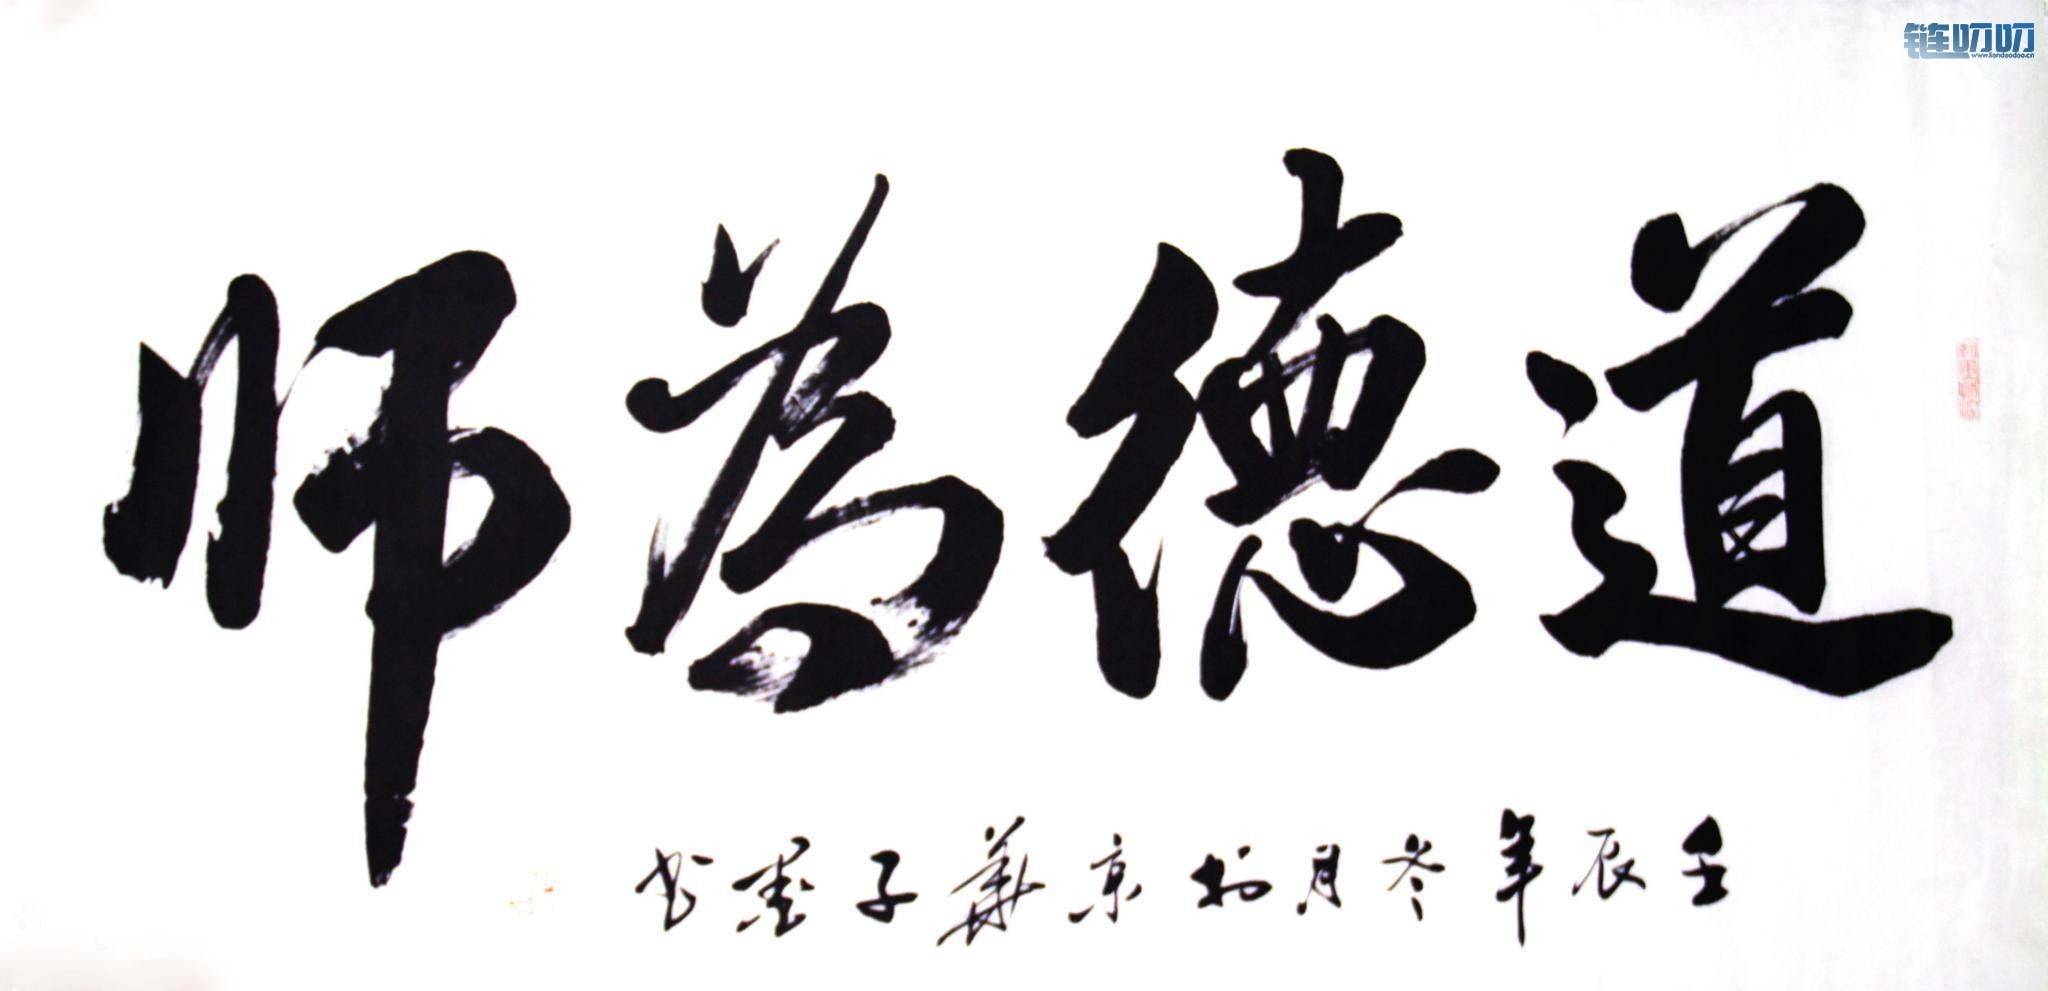 道德為师
壬辰年冬月於京華子墨书
链叨叨
www.liandaodao.cn